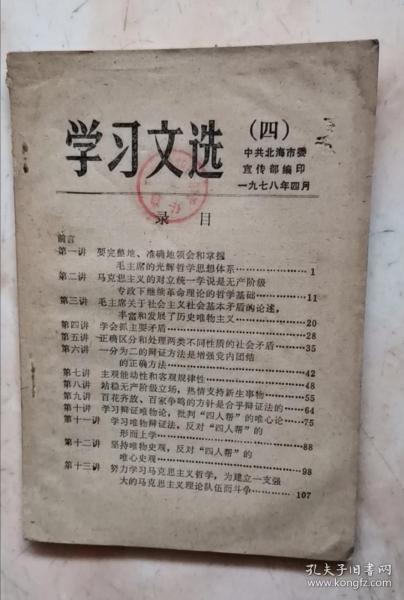 学习文选
(四)
中共北海市委
宣传部编印
一九七八年四月
录 目
前言
第一讲 要完整地、准确地领会和掌握
毛主席的光辉哲学思想体系……1
第二讲 马克思主义的对立统一学说是无产阶级
专政下继续革命理论的哲学基础……11
第三讲 毛主席关于社会主义社会基本矛盾的论述,
丰富和发展了历史唯物主义……20
第四讲 学会抓主要矛盾……28
第五讲 正确区分和处理两类不同性质的社会矛盾……35
第六讲 一分为二的辩证方法是增强党内团结
的正确方法……42
第七讲 主观能动性和客观规律性……48
第八讲 站稳无产阶级立场,热情支持新生事物……55
第九讲 百花齐放,百家争鸣的方针是合乎辩证法的……64
第十讲 学习辩证唯物论,批判“四人帮”的唯心论……75
第十一讲 学习唯物辩证法,反对“四人帮”的
形而上学……88
第十二讲 坚持唯物史观,反对“四人帮”的
唯心史观……98
第十三讲 努力学习马克思主义哲学,为建立一支强
大的马克思主义理论队伍而斗争……107
孔夫子旧书网
www.kongfz.com